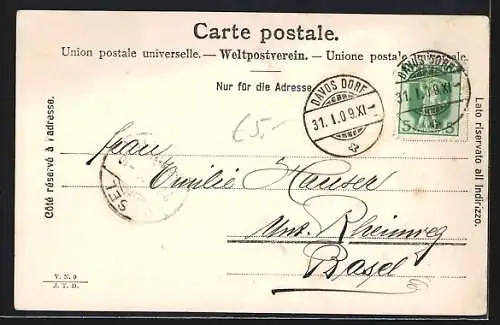 Carte postale.
Union postale universelle. — Weltpostverein. — Unione postale universale.
Nur für die Adresse
DAVOS DORF
31. I. 09. XI
DAVOS DORF
31. I. 09. XI
5 5
£5.-
Côté réservé à l'adresse.
Lato riservato all'Indirizzo.
Frau
Emilie Hauser
Unt. Rheinweg
Basel
V. N. 9
J. T. D.